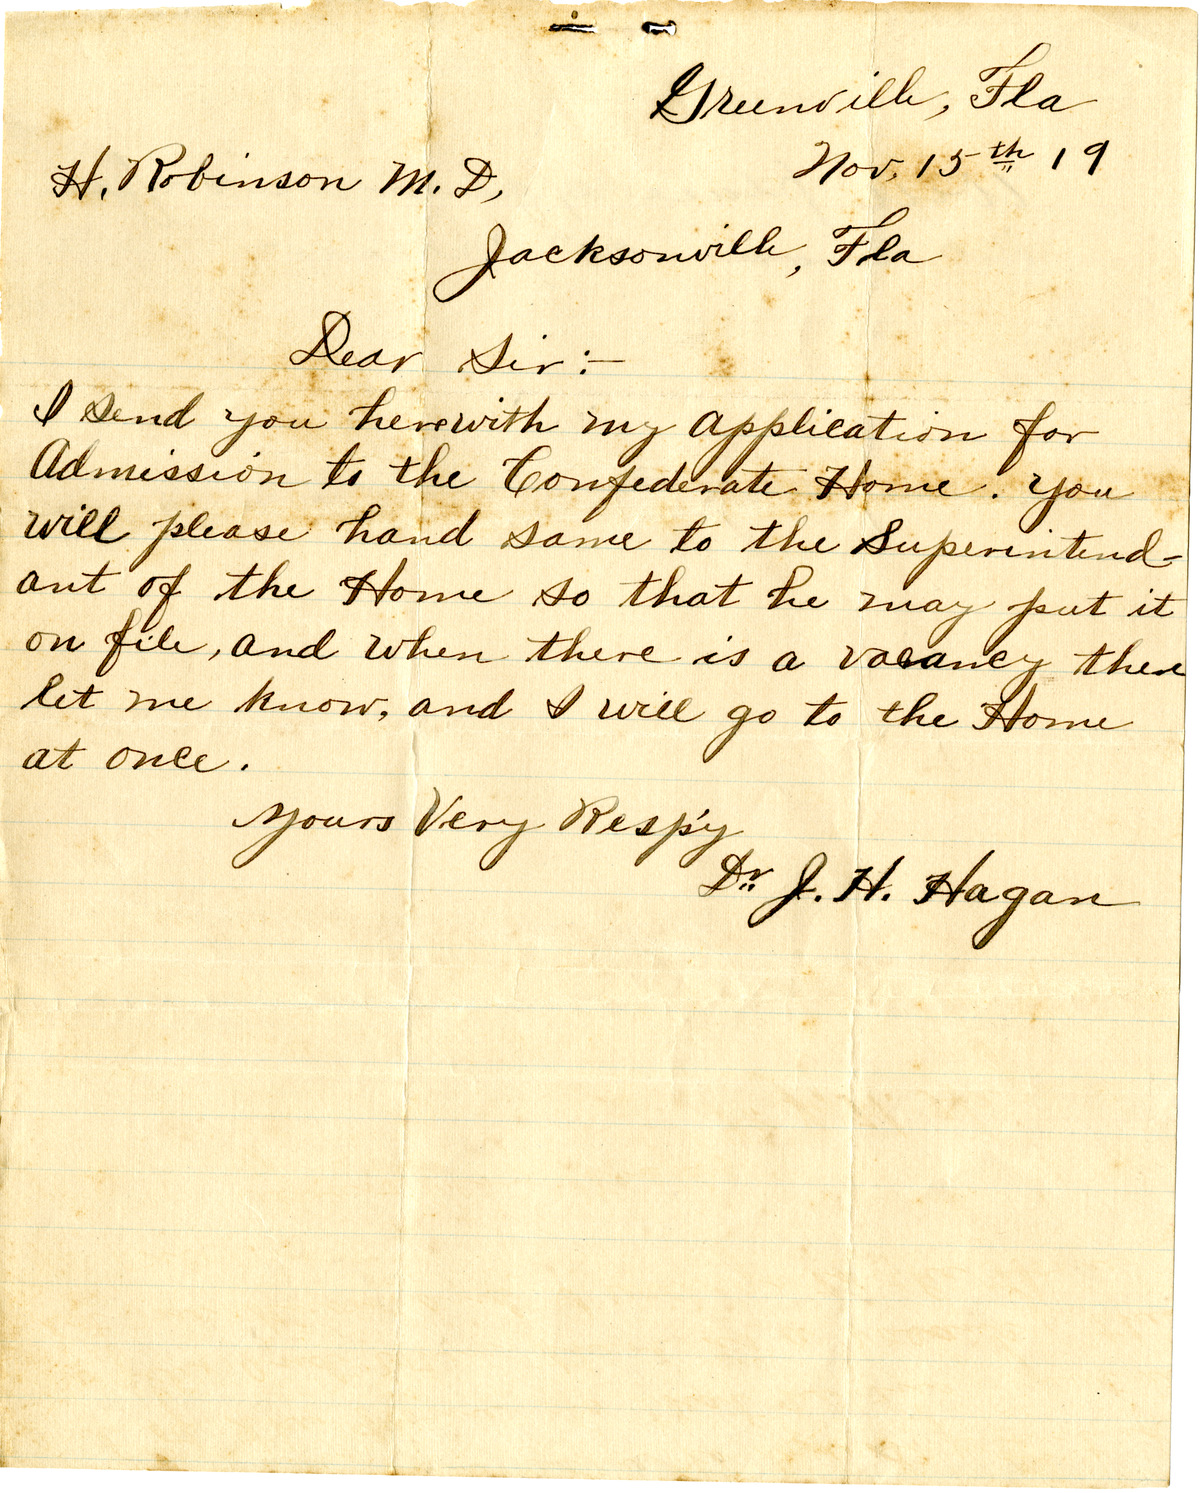 Greenville, Fla
Nov, 15th 19
H. Robinson M. D,
Jacksonville, Fla
Dear Sir:-
I send you herewith my application for
Admission to the Confederate Home. You
will please hand same to the Superintend-
ant of the Home so that he may put it
on file, and when there is a vacancy there
let me know, and I will go to the Home
at once.
Yours Very Resp'y
Dr J. H. Hagan